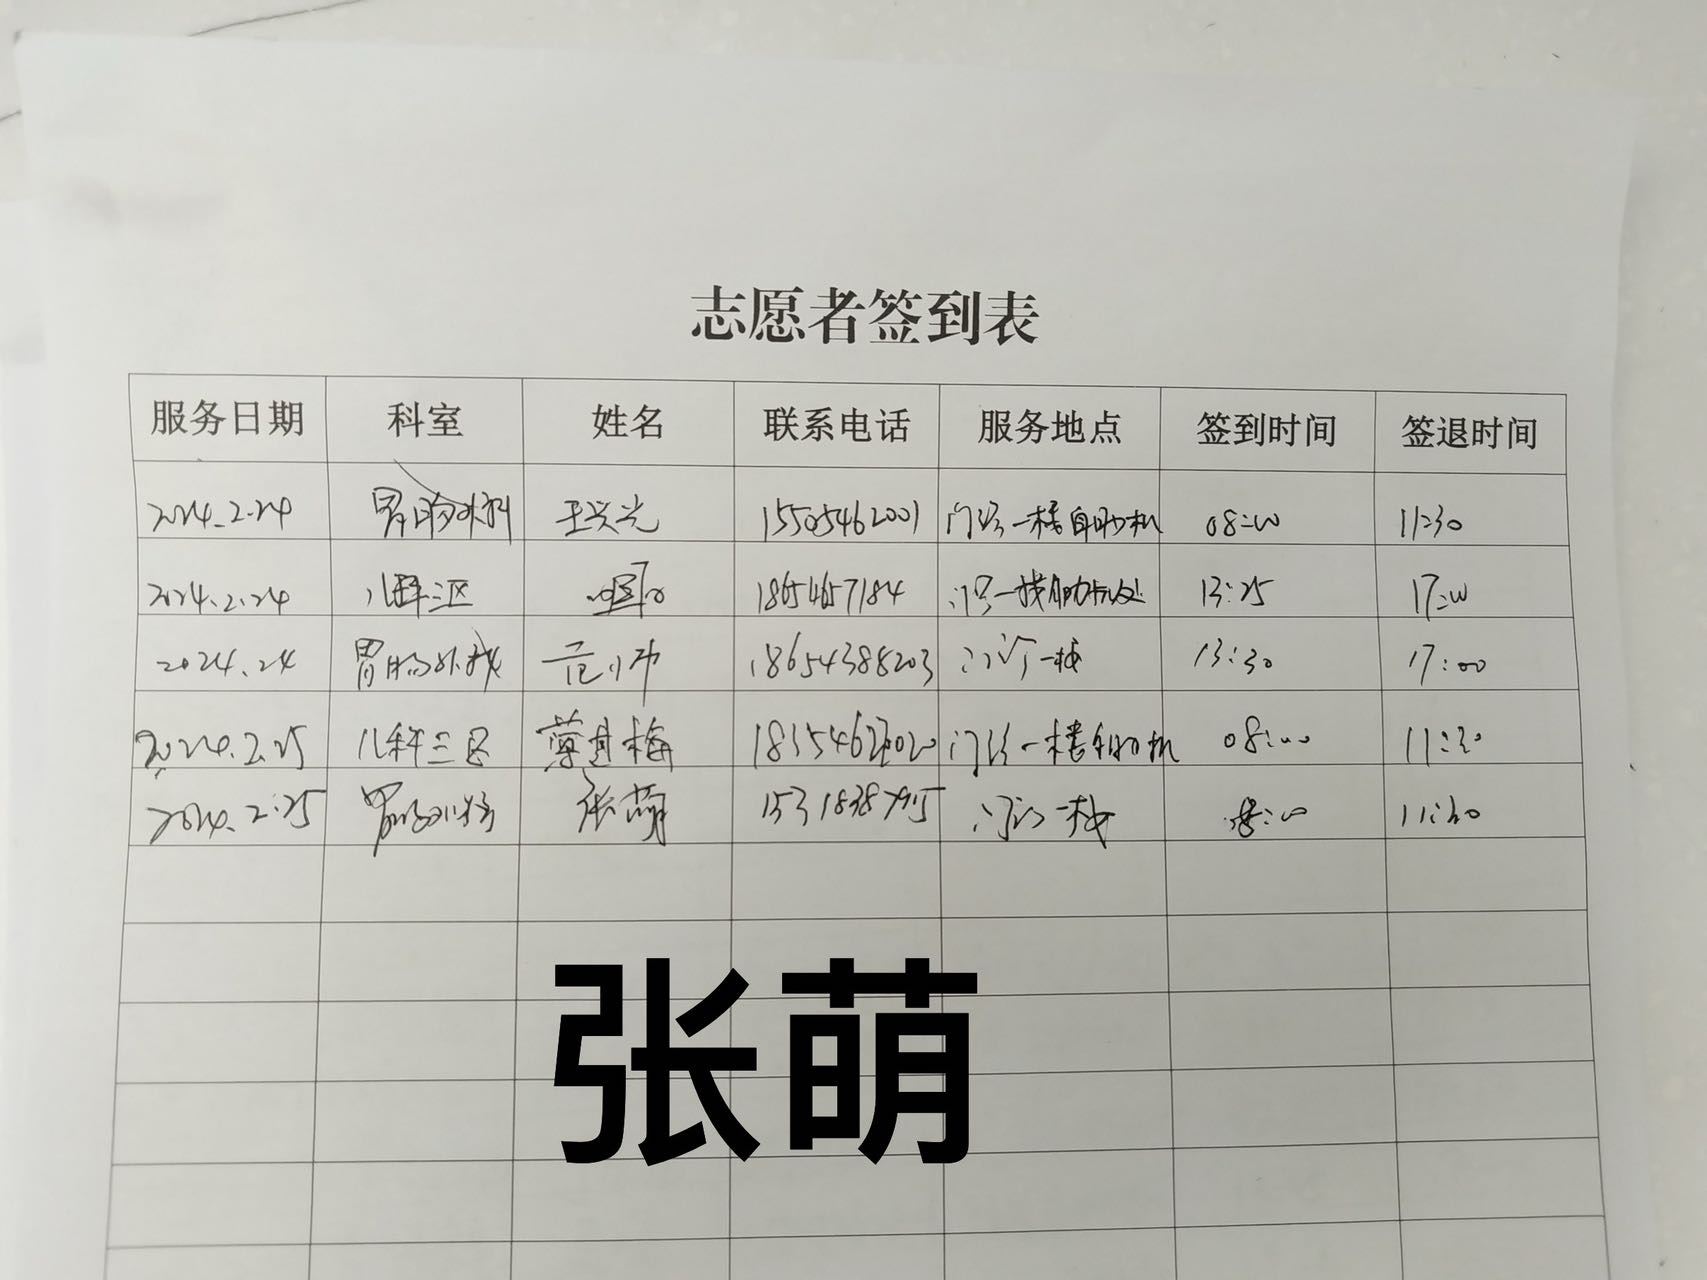 志愿者签到表
服务日期 科室 姓名 联系电话 服务地点 签到时间 签退时间
2024.2.24 胃肠外科 王兴光 15505462001 门诊一楼自助机 08:00 11:30
2024.2.24 儿科三区 18654657184 门诊一楼 13:25 17:00
2024.24 胃肠外科 范小冲 18654388203 门诊一楼 13:30 17:00
2024.2.25 儿科三区 薄进梅 门诊一楼自助机 08:00 11:30
2024.2.25 胃肠外科 张萌 门诊一楼 8:00 11:30
张萌